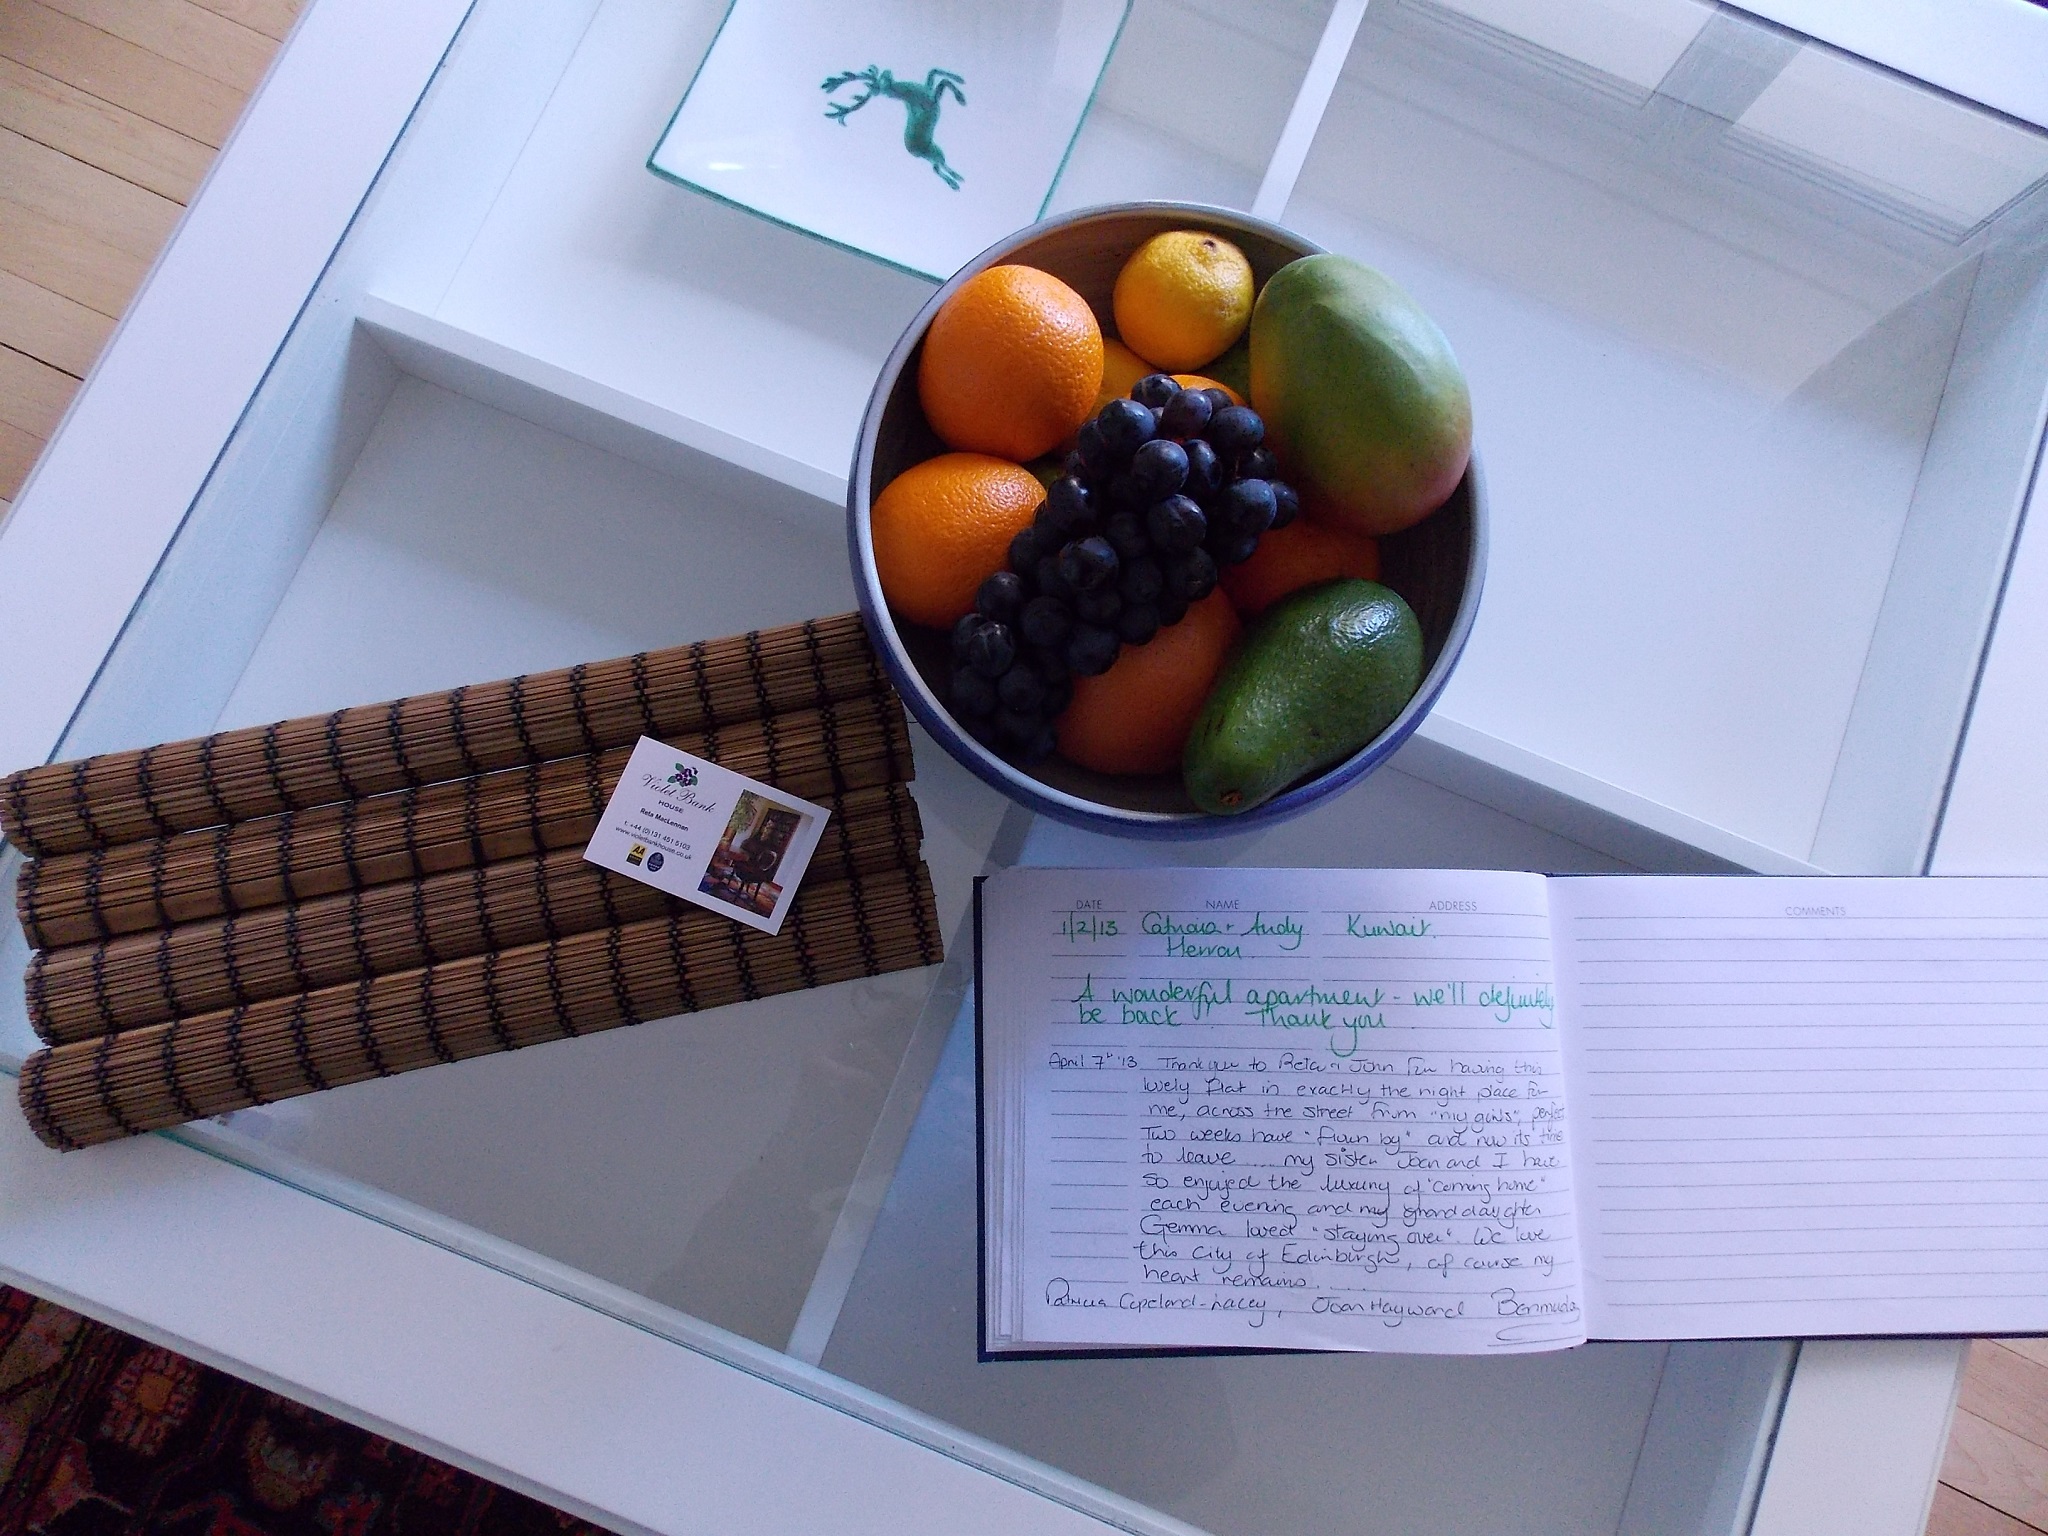 Violet Bank
HOUSE
Reta MacLennan
t. +44 (0)131 451 5103
www.violetbankhouse.co.uk
AA
DATE NAME ADDRESS
1/2/13 Catriona + Andy Kuwait.
Herron
A wonderful apartment - we'll definitely
be back! Thank you
April 7th '13 Thank you to Reta & John for having this
lovely flat in exactly the right place for
me, across the street from "my girls", perfect
Two weeks have "flown by" and now its time
to leave .... my sister Joan and I have
so enjoyed the luxury of "coming home"
each evening and my granddaughter
Gemma loved "staying over". We love
this city of Edinburgh, of course my
heart remains....
Patricia Copeland-Lacey, Joan Hayward Bermuda
COMMENTS